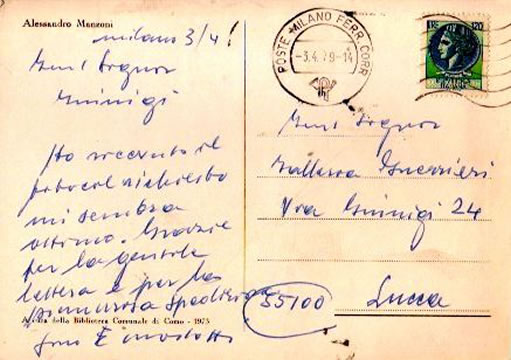 Alessandro Manzoni
milano 3/4
Gent Signor
Guinigi
Ho ricevuto il
protocol richiesto
mi sembra
ottimo. Grazie
per la gentile
lettera e per la
premurosa spedizione
Archivio della Biblioteca Comunale di Como - 1973
POSTE MILANO FERR. CORR
-3.4.79-14
Gent Signor
Guerrieri
Via Guinigi 24
55100 Lucca